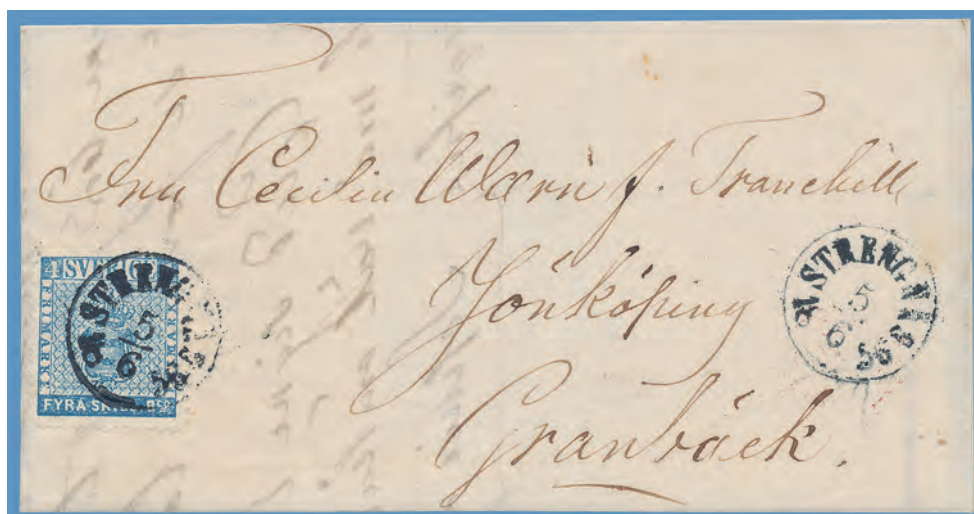 Fru Cecilia Wærn f. Tranchell
Jönköping
Granbäck.
4 SVERIGE
FRIMÄRKE
FYRA SKILL. BCO
STRENGNÄS
15
6
56
STRENGNÄS
15
6
56